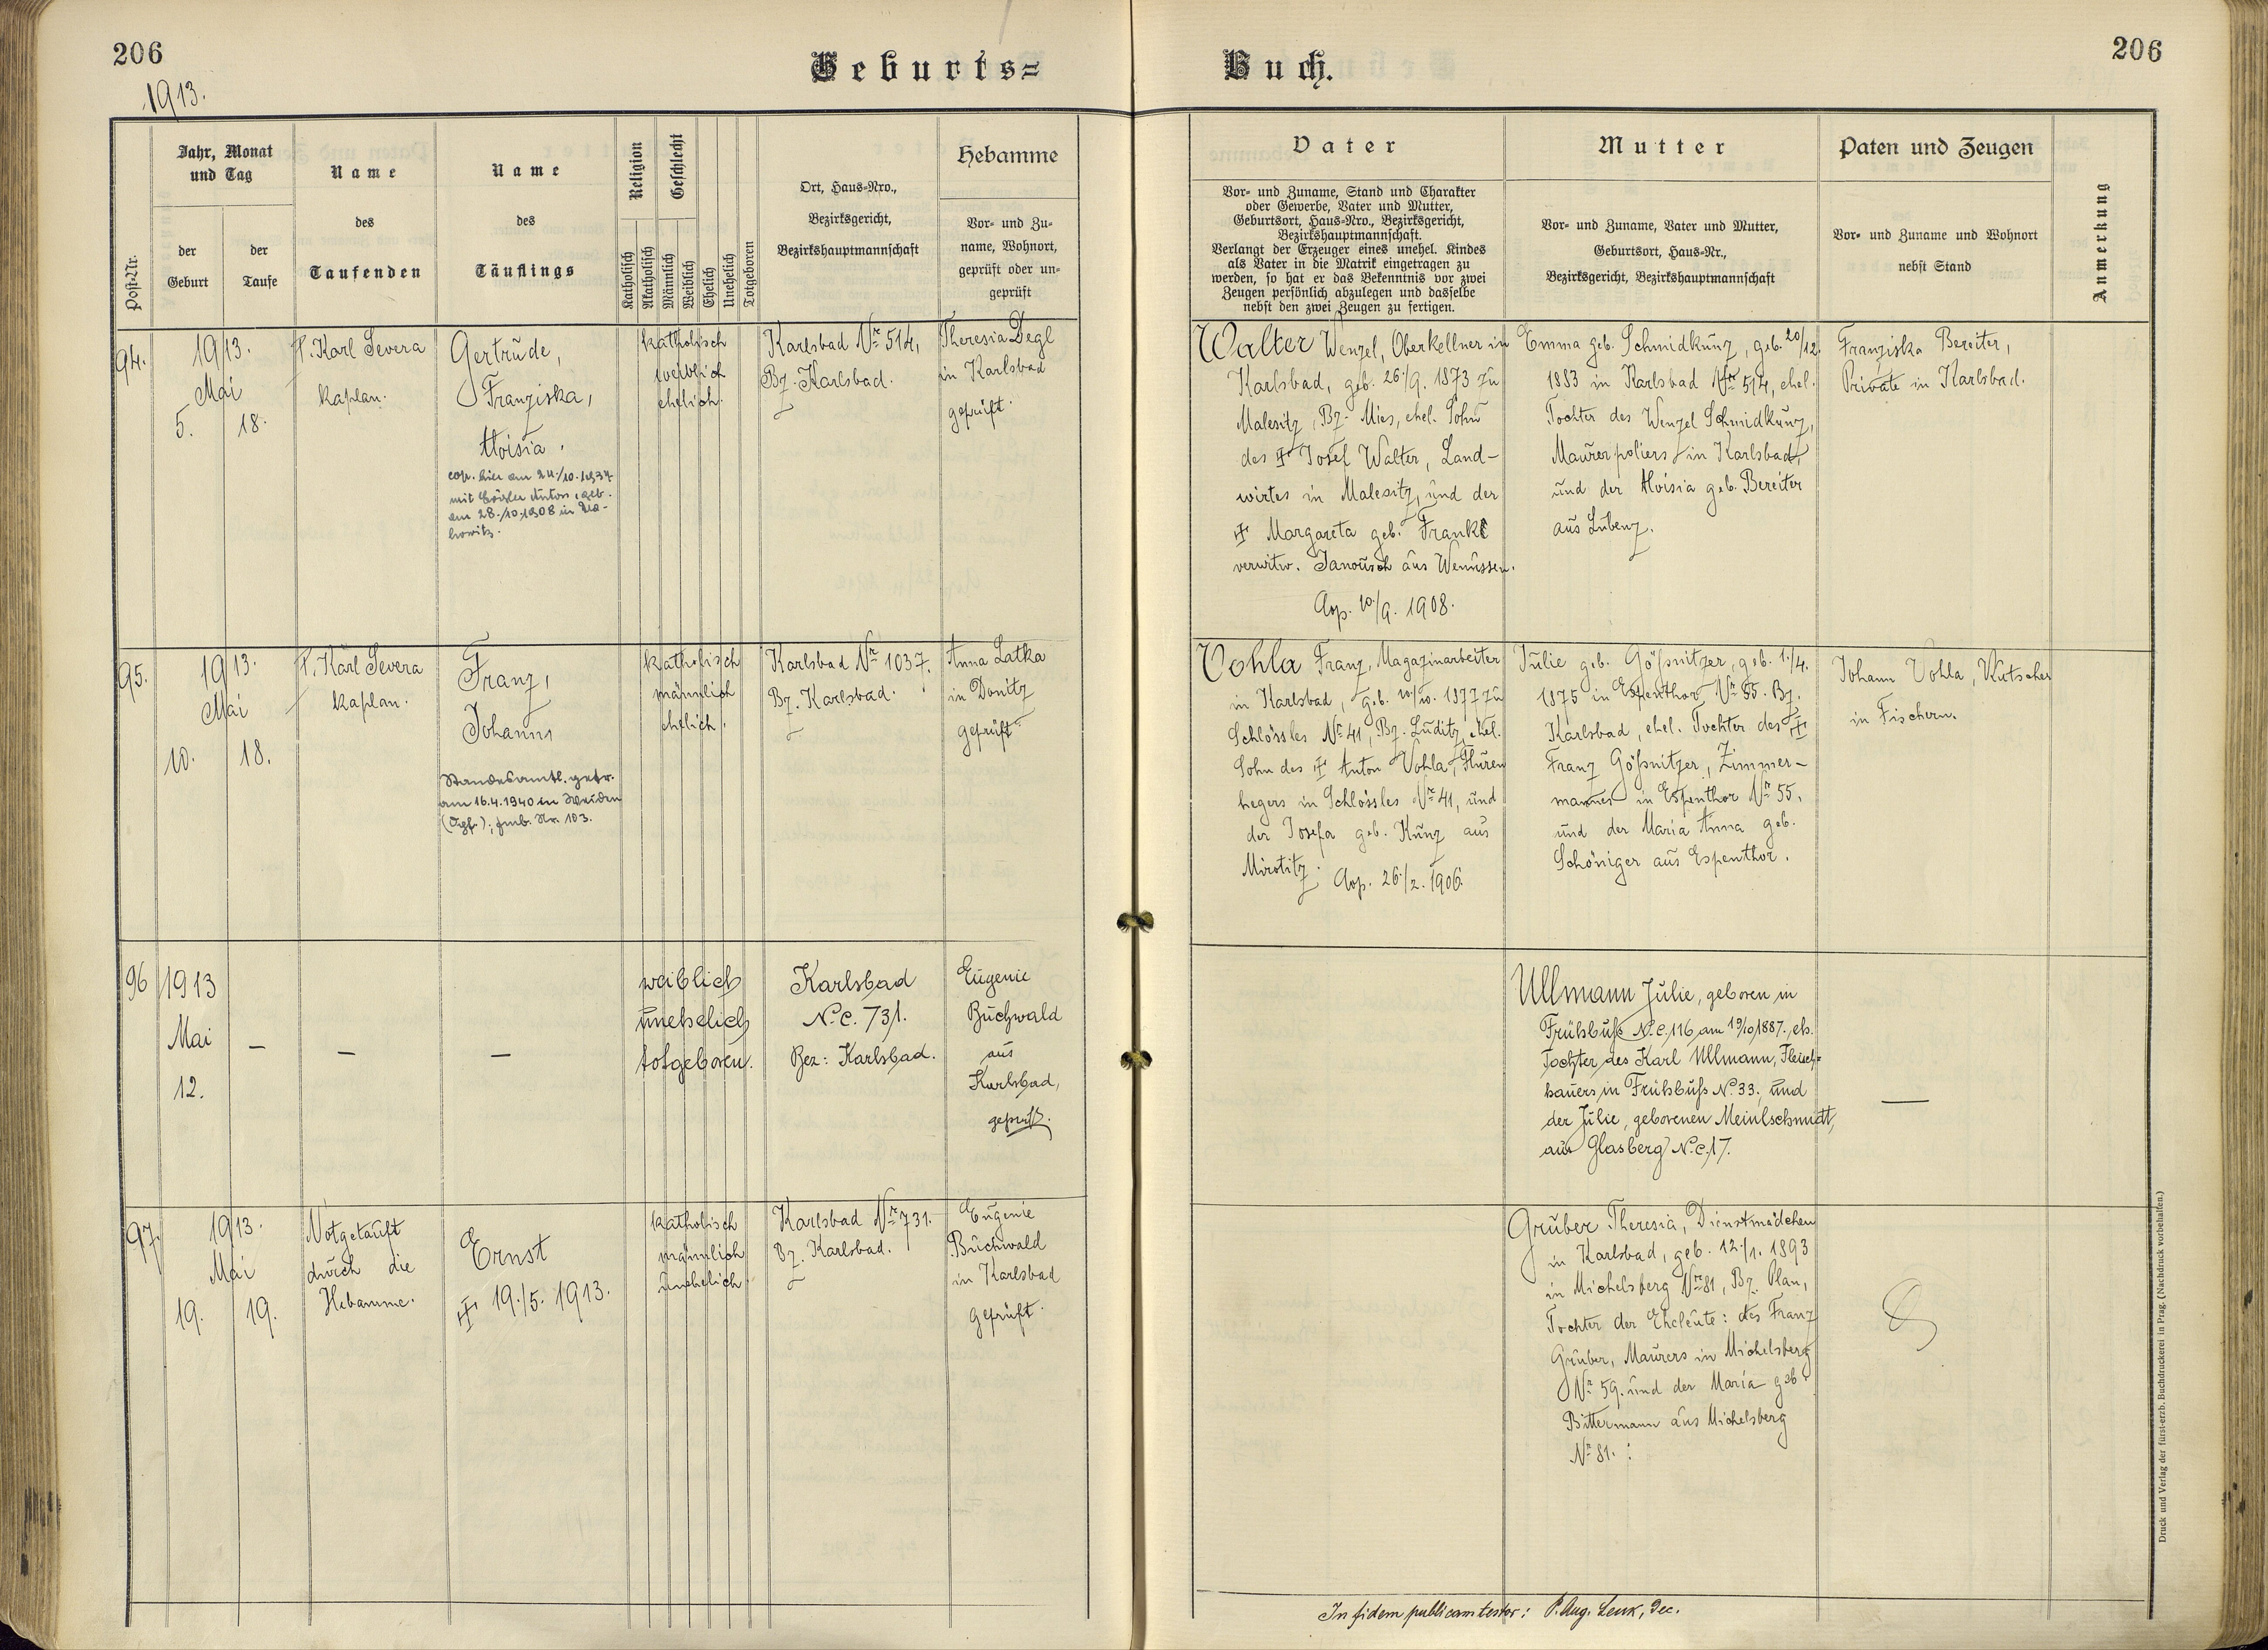 206
1913.
Geburts=
Buch.
206
Post-Nr.
Jahr, Monat
und Tag
der
Geburt
der
Taufe
Name
des
Taufenden
Name
des
Täuflings
Religion
Katholisch
Akatholisch
Geschlecht
Männlich
Weiblich
Ehelich
Unehelich
Totgeboren
Ort, Haus-Nro.,
Bezirksgericht,
Bezirkshauptmannschaft
Hebamme
Vor- und Zu-
name, Wohnort,
geprüft oder un-
geprüft
Vater
Vor- und Zuname, Stand und Charakter
oder Gewerbe, Vater und Mutter,
Geburtsort, Haus-Nro., Bezirksgericht,
Bezirkshauptmannschaft.
Verlangt der Erzeuger eines unehel. Kindes
als Vater in die Matrik eingetragen zu
werden, so hat er das Bekenntnis vor zwei
Zeugen persönlich abzulegen und dasselbe
nebst den zwei Zeugen zu fertigen.
Mutter
Vor- und Zuname, Vater und Mutter,
Geburtsort, Haus-Nr.,
Bezirksgericht, Bezirkshauptmannschaft
Paten und Zeugen
Vor- und Zuname und Wohnort
nebst Stand
Anmerkung
94.
1913.
Mai
5. 18.
P. Karl Severa
Kaplan.
Gertrude,
Franziska,
Aloisia.
cop. hier am 24./10.1937
mit Anton, geb.
am 28./10.1908 in
katholisch
weiblich
ehelich.
Karlsbad Nr. 514,
Bz. Karlsbad.
Theresia Degl
in Karlsbad
geprüft.
Walter Wenzel, Oberkellner in
Karlsbad, geb. 26./9. 1873 zu
Malesitz, Bz. Mies, ehel. Sohn
des ✠ Josef Walter, Land-
wirtes in Malesitz, und der
✠ Margareta geb. Frankl
verwitw. Janousch aus Wenussen.
Cop. 10./9. 1908.
Emma geb. Schmidkunz, geb. 20/12.
1883 in Karlsbad Nr. 514, ehel.
Tochter des Wenzel Schmidkunz,
Maurerpoliers in Karlsbad,
und der Aloisia geb. Bereiter
aus Lubenz.
Franziska Bereiter,
Private in Karlsbad.
95.
1913.
Mai
10. 18.
P. Karl Severa
Kaplan.
Franz,
Johann
Standesamtl. getr.
am 16.4.1940 in Weiden
Nr. 103.
katholisch
männlich
ehelich.
Karlsbad Nr. 1037.
Bz. Karlsbad.
Anna Latka
in Donitz
geprüft.
Vohla Franz, Magazinarbeiter
in Karlsbad, geb. 10./10. 1877 zu
Schlössles Nr. 41, Bz. Luditz, ehel.
Sohn des ✠ Anton Vohla, Fluren
hegers in Schlössles Nr. 41, und
der Josefa geb. Kunz aus
Mirotitz.
Cop. 26./2. 1906.
Julie geb. Gößnitzer, geb. 1./4.
1875 in Espenthor Nr. 55. Bz.
Karlsbad, ehel. Tochter des ✠
Franz Gößnitzer, Zimmer-
mannes in Espenthor Nr. 55,
und der Maria Anna geb.
Schöniger aus Espenthor.
Johann Vohla, Kutscher
in Fischern.
96
1913
Mai
12.
—
—
—
weiblich
unehelich
totgeboren.
Karlsbad
N.C. 731.
Bez: Karlsbad.
Eugenie
Buchwald
aus
Karlsbad,
geprüft.
Ullmann Julie, geboren in
Frühbuß N.C. 116 am 19/10 1887., eh.
Tochter des Karl Ullmann, Fleisch=
hauers in Frühbuß N. 33., und
der Julie, geborenen Meinlschmidt,
aus Glasberg N.C. 17.
—
97.
1913.
Mai
19. 19.
Notgetauft
durch die
Hebamme.
Ernst
✠ 19./5. 1913.
katholisch
männlich
unehelich
Karlsbad Nr. 731.
Bz. Karlsbad.
Eugenie
Buchwald
in Karlsbad
geprüft.
Gruber Theresia, Dienstmädchen
in Karlsbad, geb. 12./1. 1893
in Michelsberg Nr. 81, Bz. Plan,
Tochter der Eheleute: des Franz
Gruber, Maurers in Michelsberg
Nr. 59. und der Maria geb.
Bittermann aus Michelsberg
Nr. 81. :
In fidem publicam testor: P. Aug. Lenk, Dec.
Druck und Verlag der fürst-erzb. Buchdruckerei in Prag. (Nachdruck vorbehalten.)